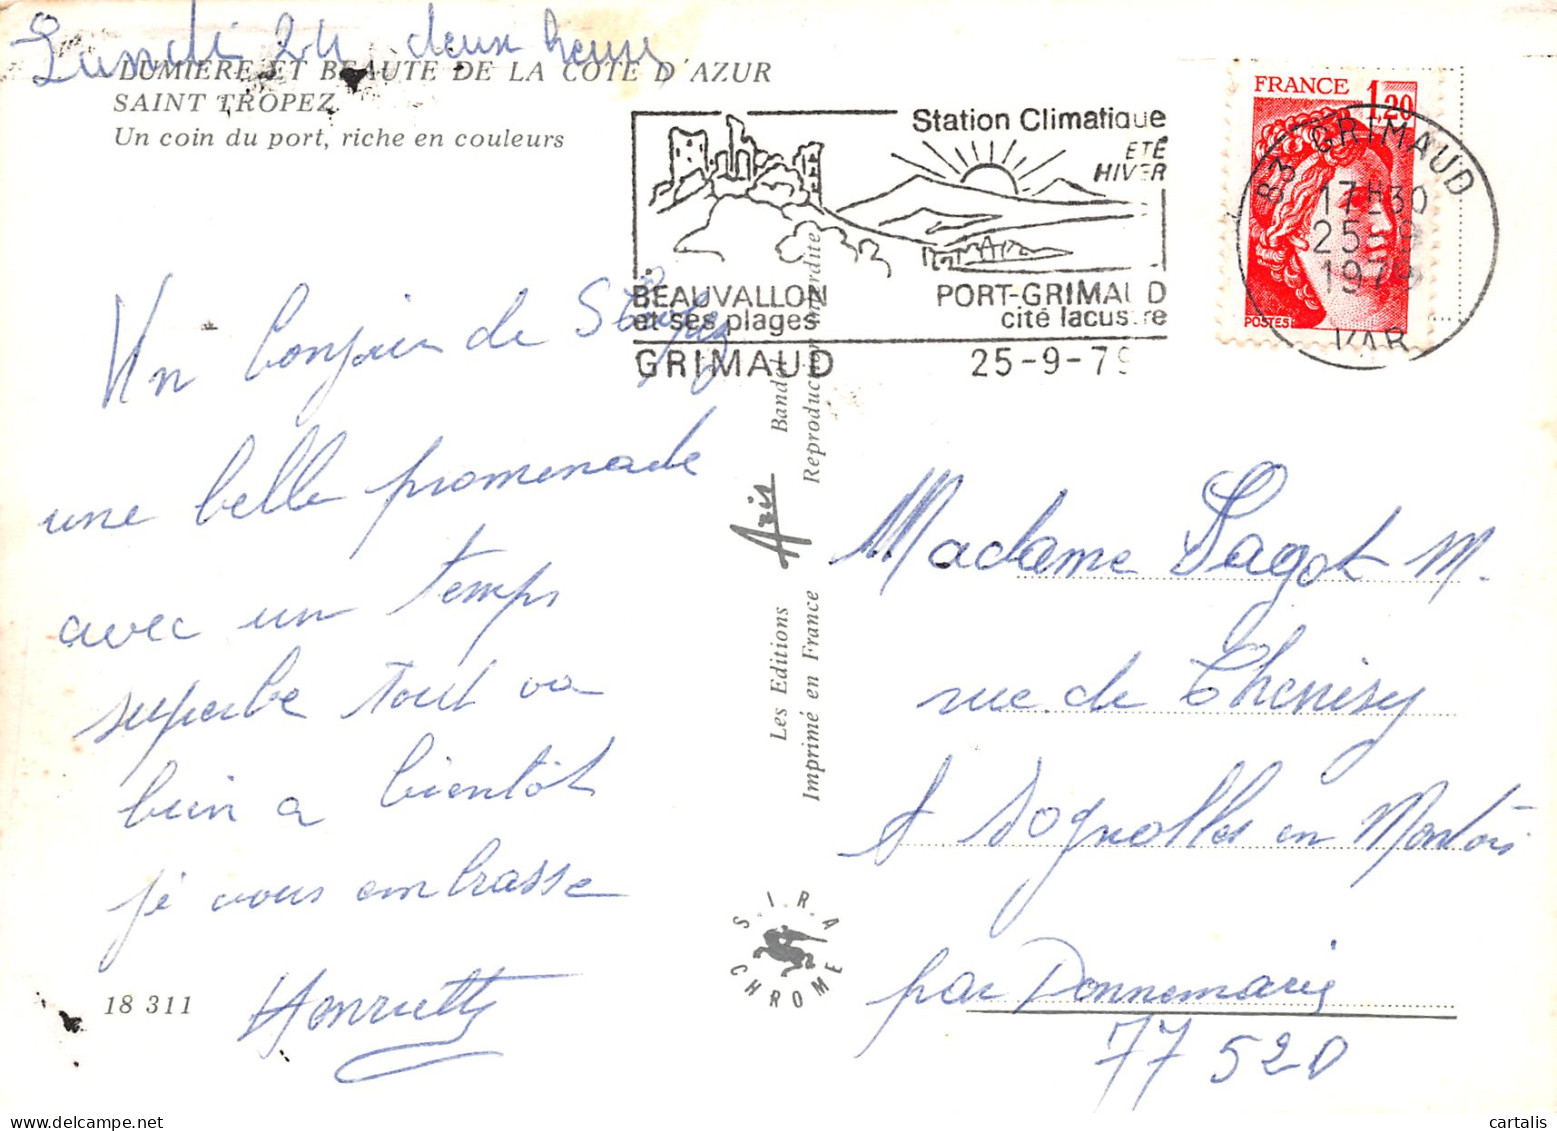 Lundi 24 deux heures
LUMIERE ET BEAUTE DE LA COTE D'AZUR
SAINT TROPEZ.
Un coin du port, riche en couleurs
Un bonjour de St Tropez
une belle promenade
avec un temps
superbe tout va
bien a bientôt
je vous embrasse
Henriette
18 311
Station Climatique
ETÉ
HIVER
BEAUVALLON
et ses plages
PORT-GRIMAUD
cité lacustre
GRIMAUD 25-9-79
FRANCE 1,20
POSTES
83 GRIMAUD
17H30
25-9
1979
VAR
Les Editions Aris Bandol
Imprimé en France Reproduction interdite
S.I.R.A.
CHROME
Madame Sagot M.
rue de Thenisy
à Sognolles en Montois
par Donnemarie
77 520
cartalis